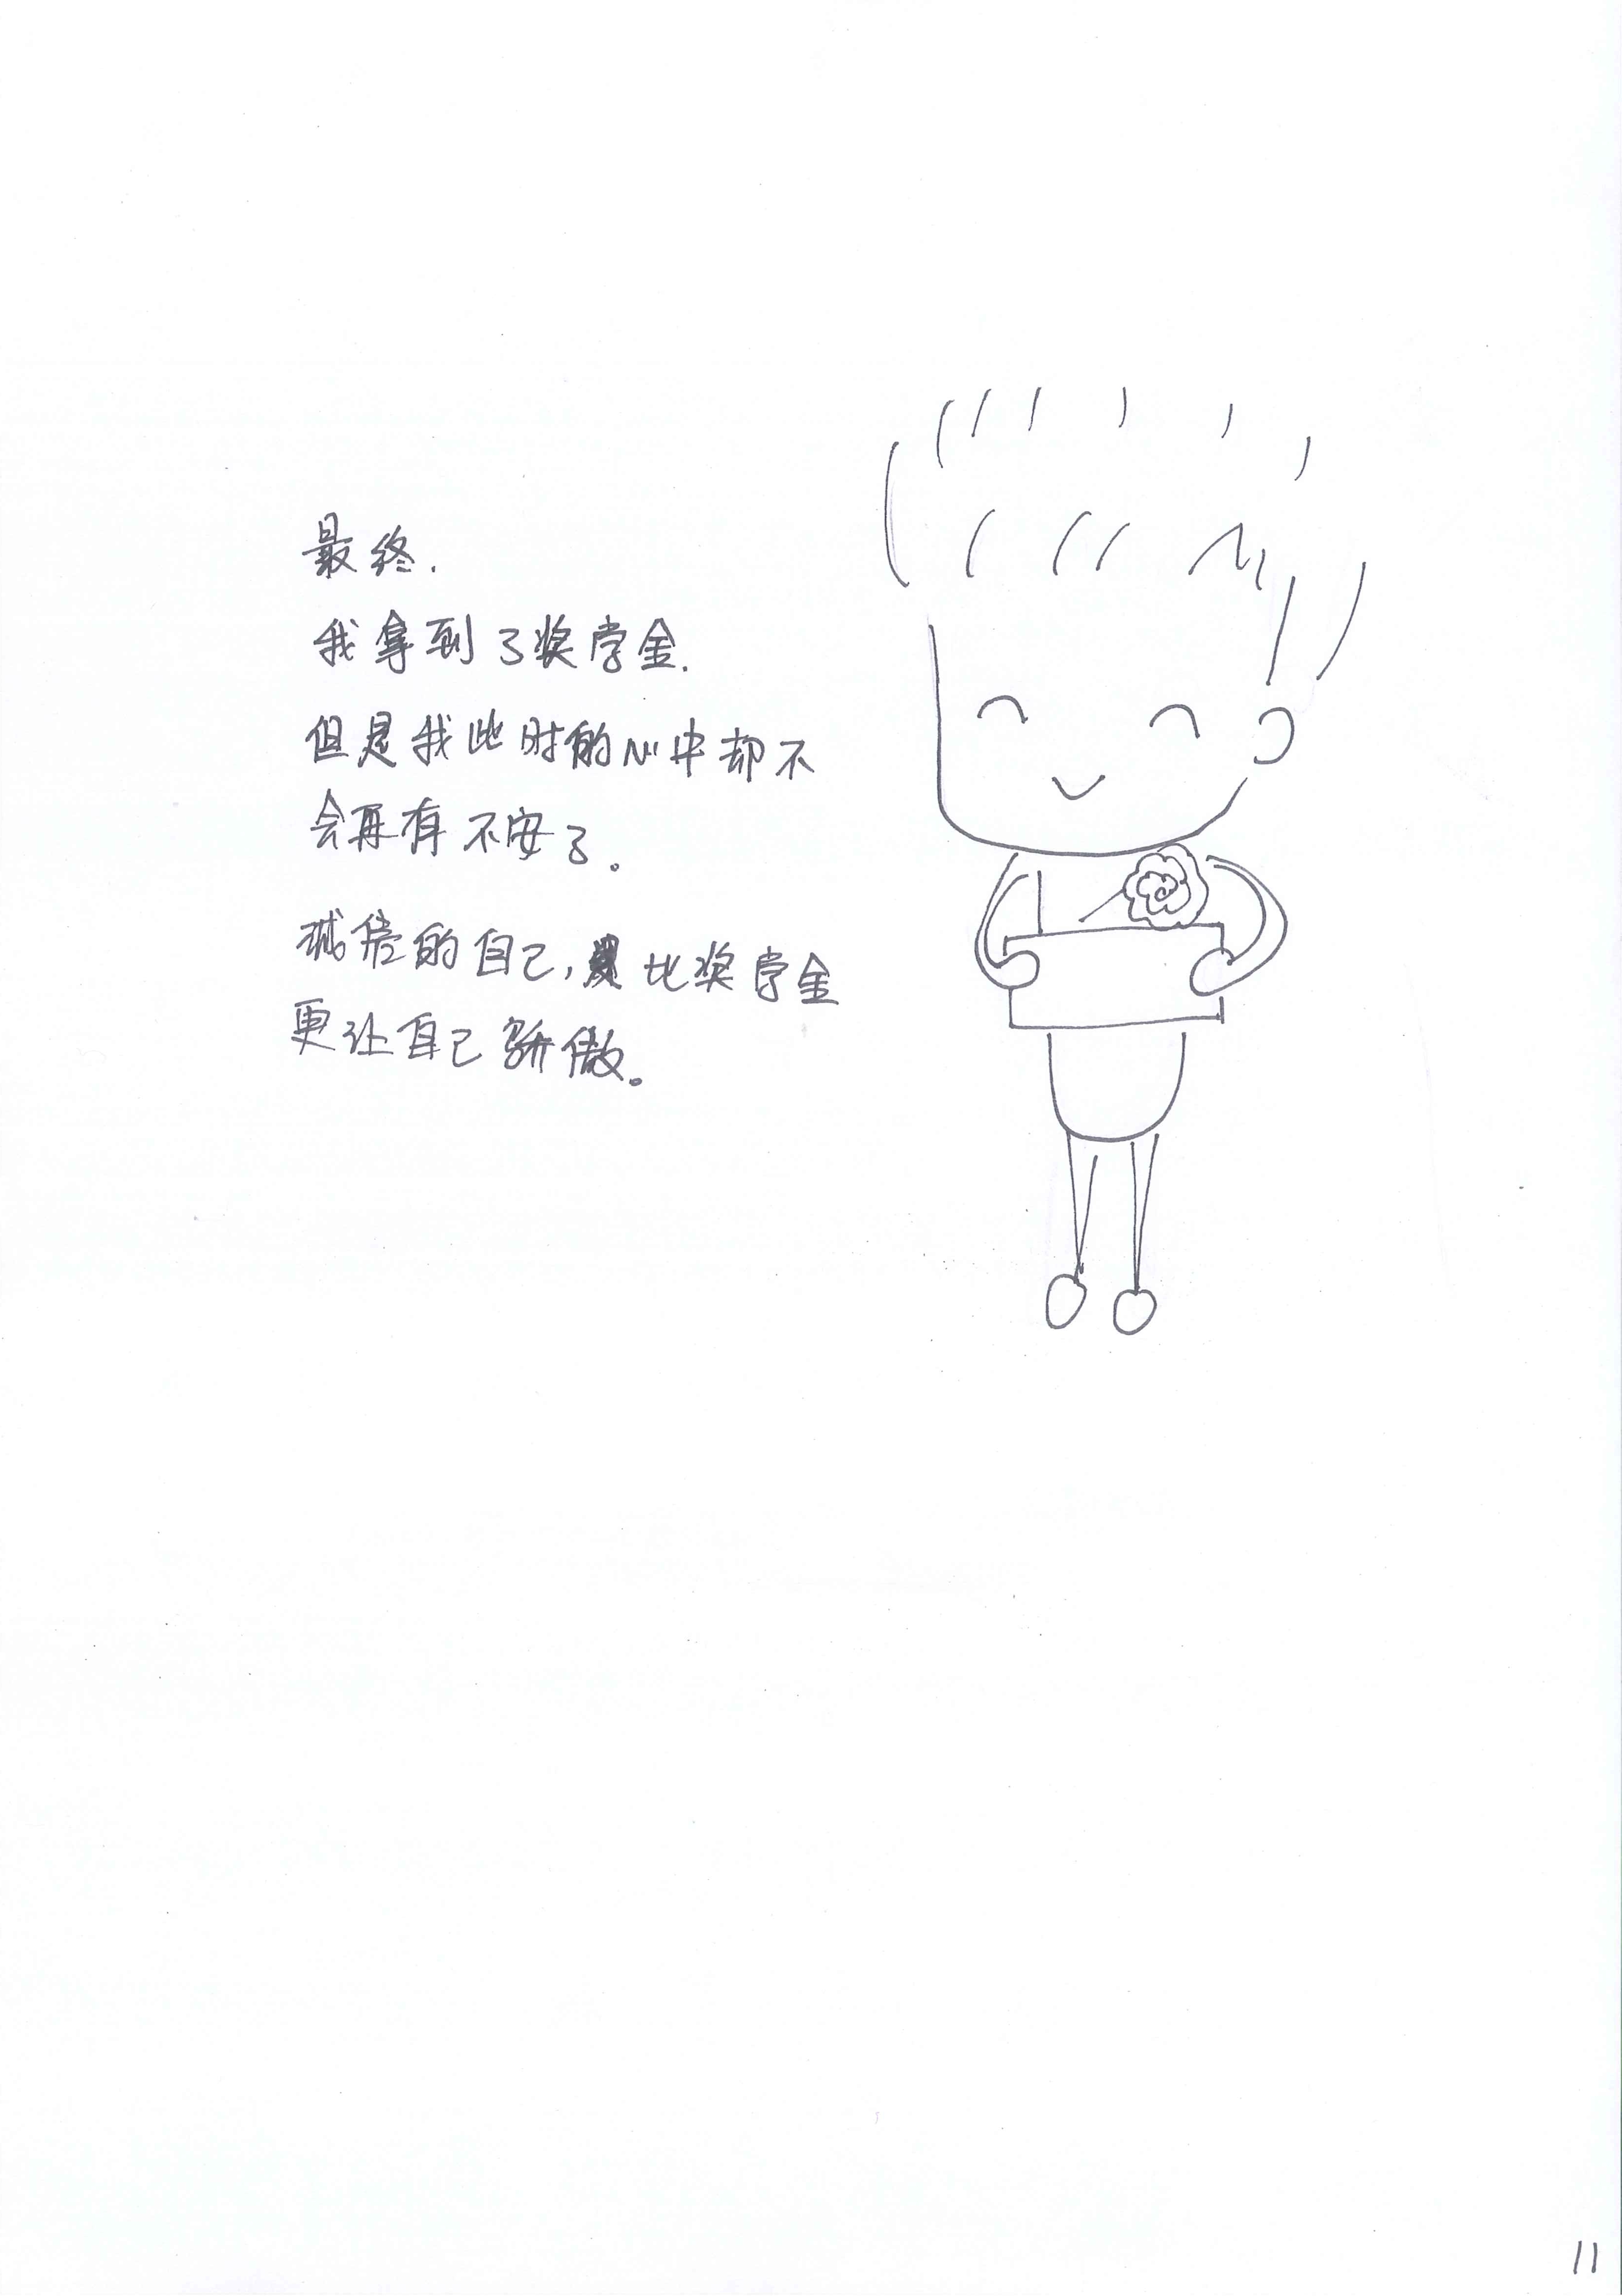 最终.
我拿到了奖学金.
但是我此时的心中却不
会再有不安了。
诚信的自己,比奖学金
更让自己骄傲。
11